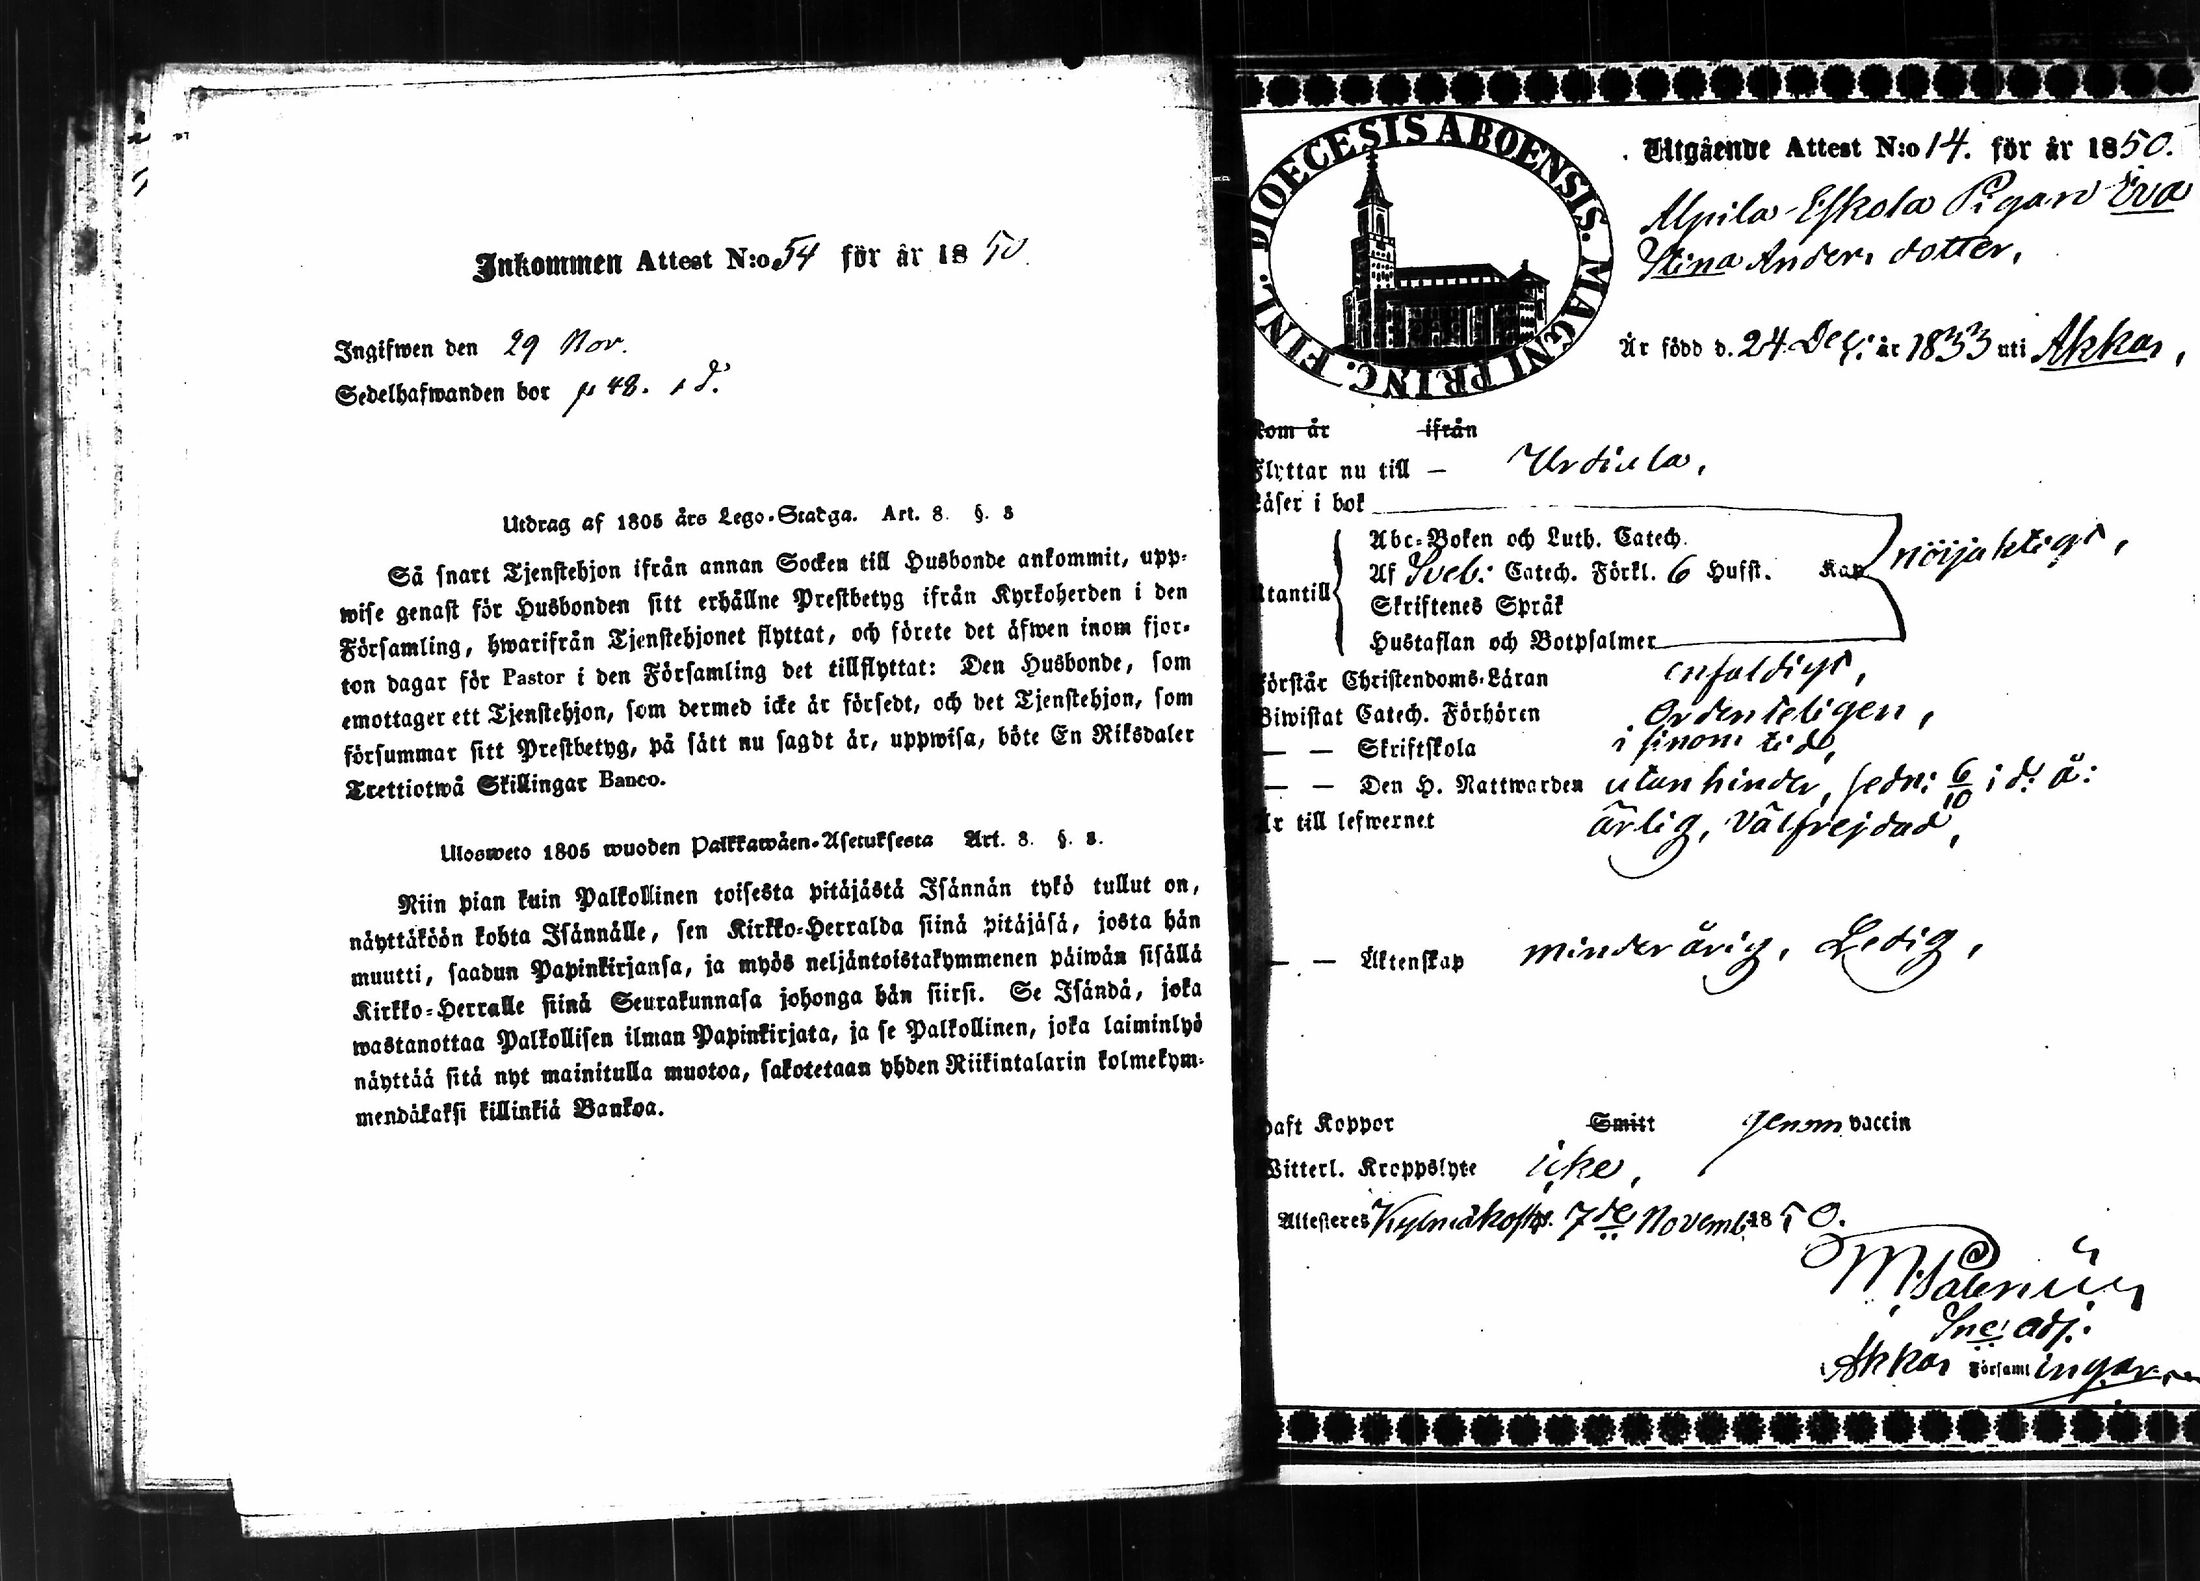 Inkommen Attest N:o 54 för år 1850.
Ingifwen den 29 Nov.
Sedelhafwanden bor p 48.
Utdrag af 1805 års Lego-Stadga. Art. 8. §. 8
Så snart Tjenstehjon ifrån annan Socken till Husbonde ankommit, upp-
wise genast för Husbonden sitt erhållne Prestbetyg ifrån Kyrkoherden i den
Församling, hwarifrån Tjenstehjonet flyttat, och förete det äfwen inom fjor-
ton dagar för Pastor i den Församling det tillflyttat: Den Husbonde, som
emottager ett Tjenstehjon, som dermed icke är försedt, och det Tjenstehjon, som
försummar sitt Prestbetyg, på sätt nu sagdt är, uppwisa, böte En Riksdaler
Trettiotwå Skillingar Banco.
Ulosweto 1805 wuoden Palkkawäen-Asetuksesta Art. 8. §. 8.
Niin pian kuin Palkollinen toisesta pitäjästä Isännän tykö tullut on,
näyttäköön kohta Isännälle, sen Kirkko-Herralda siinä pitäjäsä, josta hän
muutti, saadun Papinkirjansa, ja myös neljäntoistakymmenen päiwän sisällä
Kirkko-Herralle siinä Seurakunnasa johonga hän siirsi. Se Isändä, joka
wastanottaa Palkollisen ilman Papinkirjata, ja se Palkollinen, joka laiminlyö
näyttää sitä nyt mainitulla muotoa, sakotetaan yhden Riikintalarin kolmekym-
mendäkaksi killinkiä Bankoa.
DIOECESIS ABOENSIS. MAGNI PRINC. FINL.
Utgående Attest N:o 14. för år 1850.
Alpila Eskola Pigan Eva
Stina Anders dotter,
Är född d. 24 Dec: år 1833 uti Akkas,
Kom år ifrån
Flyttar nu till – Urdiala,
Läser i bok
Utantill
Abc-Boken och Luth. Catech.
Af Sveb: Catech. Förkl. 6 Hufst. Kap
Skriftenes Språk
Hustaflan och Botpsalmer
nöijaktigt,
Förstår Christendoms-Läran enfaldigt,
Biwistat Catech. Förhören ordenteligen,
— — Skriftskola i sinom tid,
— — Den H. Nattwarden utan hinder, sedn: 6/10 i d. å:
Är till lefwernet ärlig, välfrejdad,
— — Äktenskap minderårig, Ledig,
Haft Koppor Smitt genom vaccin
Witterl. Kroppslyte icke,
Attesteres Kylmäkoski d. 7de Novemb. 1850.
M. Salenius
Sac: adj.
i Akkas Församlingar